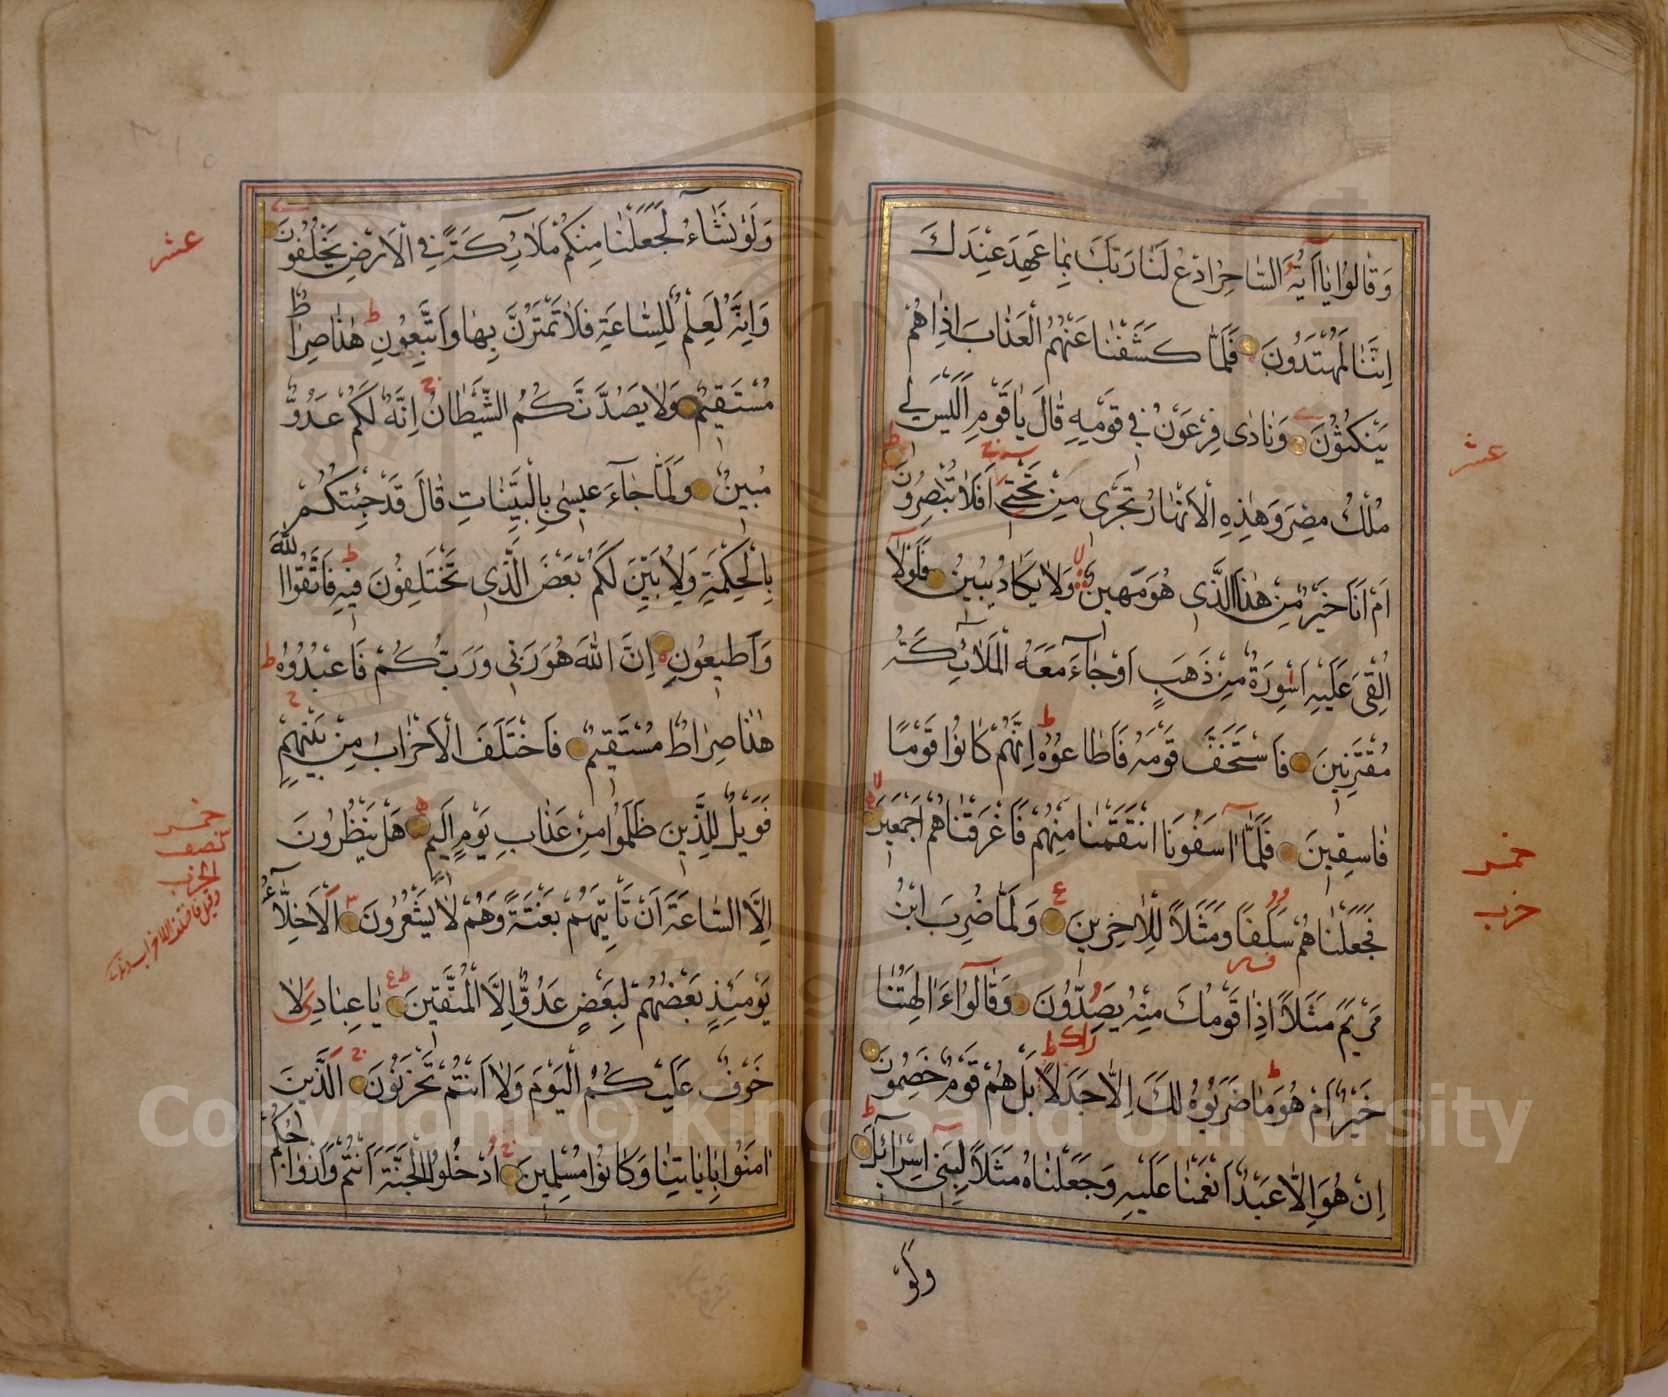 وَقَالُوا يَا اَيُّهَ السَّاحِرُ ادْعُ لَنَا رَبَّكَ بِمَا عَهِدَ عِنْدَكَ
اِنَّنَا لَمُهْتَدُونَ فَلَمَّا كَشَفْنَا عَنْهُمُ الْعَذَابَ اِذَا هُمْ
يَنْكُثُونَ وَنَادٰى فِرْعَوْنُ فِى قَوْمِهِ قَالَ يَا قَوْمِ اَلَيْسَ لِى
مُلْكُ مِصْرَ وَهٰذِهِ الْاَنْهَارُ تَجْرِى مِنْ تَحْتِى اَفَلَا تُبْصِرُونَ
اَمْ اَنَا خَيْرٌ مِنْ هٰذَا الَّذِى هُوَ مَهِينٌ وَلَا يَكَادُ يُبِينُ فَلَوْلَا
اُلْقِىَ عَلَيْهِ اَسْوِرَةٌ مِنْ ذَهَبٍ اَوْ جَاءَ مَعَهُ الْمَلَائِكَةُ
مُقْتَرِنِينَ فَاسْتَخَفَّ قَوْمَهُ فَاَطَاعُوهُ اِنَّهُمْ كَانُوا قَوْمًا
فَاسِقِينَ فَلَمَّا آسَفُونَا انْتَقَمْنَا مِنْهُمْ فَاَغْرَقْنَاهُمْ اَجْمَعِينَ
فَجَعَلْنَاهُمْ سَلَفًا وَمَثَلًا لِلْاٰخِرِينَ وَلَمَّا ضُرِبَ ابْنُ
مَرْيَمَ مَثَلًا اِذَا قَوْمُكَ مِنْهُ يَصِدُّونَ وَقَالُوا ءَاٰلِهَتُنَا
خَيْرٌ اَمْ هُوَ مَا ضَرَبُوهُ لَكَ اِلَّا جَدَلًا بَلْ هُمْ قَوْمٌ خَصِمُونَ
اِنْ هُوَ اِلَّا عَبْدٌ اَنْعَمْنَا عَلَيْهِ وَجَعَلْنَاهُ مَثَلًا لِبَنِى اِسْرَائِلَ
وَلَوْ
عشر
خمس
حزب
وَلَوْ نَشَاءُ لَجَعَلْنَا مِنْكُمْ مَلَائِكَةً فِى الْاَرْضِ يَخْلُفُونَ
وَاِنَّهُ لَعِلْمٌ لِلسَّاعَةِ فَلَا تَمْتَرُنَّ بِهَا وَاتَّبِعُونِ هٰذَا صِرَاطٌ
مُسْتَقِيمٌ وَلَا يَصُدَّنَّكُمُ الشَّيْطَانُ اِنَّهُ لَكُمْ عَدُوٌّ
مُبِينٌ وَلَمَّا جَاءَ عِيسٰى بِالْبَيِّنَاتِ قَالَ قَدْ جِئْتُكُمْ
بِالْحِكْمَةِ وَلِاُبَيِّنَ لَكُمْ بَعْضَ الَّذِى تَخْتَلِفُونَ فِيهِ فَاتَّقُوا اللّٰهَ
وَاَطِيعُونِ اِنَّ اللّٰهَ هُوَ رَبِّى وَرَبُّكُمْ فَاعْبُدُوهُ
هٰذَا صِرَاطٌ مُسْتَقِيمٌ فَاخْتَلَفَ الْاَحْزَابُ مِنْ بَيْنِهِمْ
فَوَيْلٌ لِلَّذِينَ ظَلَمُوا مِنْ عَذَابِ يَوْمٍ اَلِيمٍ هَلْ يَنْظُرُونَ
اِلَّا السَّاعَةَ اَنْ تَأْتِيَهُمْ بَغْتَةً وَهُمْ لَا يَشْعُرُونَ اَلْاَخِلَّاءُ
يَوْمَئِذٍ بَعْضُهُمْ لِبَعْضٍ عَدُوٌّ اِلَّا الْمُتَّقِينَ يَا عِبَادِى لَا
خَوْفٌ عَلَيْكُمُ الْيَوْمَ وَلَا اَنْتُمْ تَحْزَنُونَ اَلَّذِينَ
اٰمَنُوا بِاٰيَاتِنَا وَكَانُوا مُسْلِمِينَ اُدْخُلُوا الْجَنَّةَ اَنْتُمْ وَاَزْوَاجُكُمْ
عشر
خمس
نصف
الحزب
Copyright © King Saud University